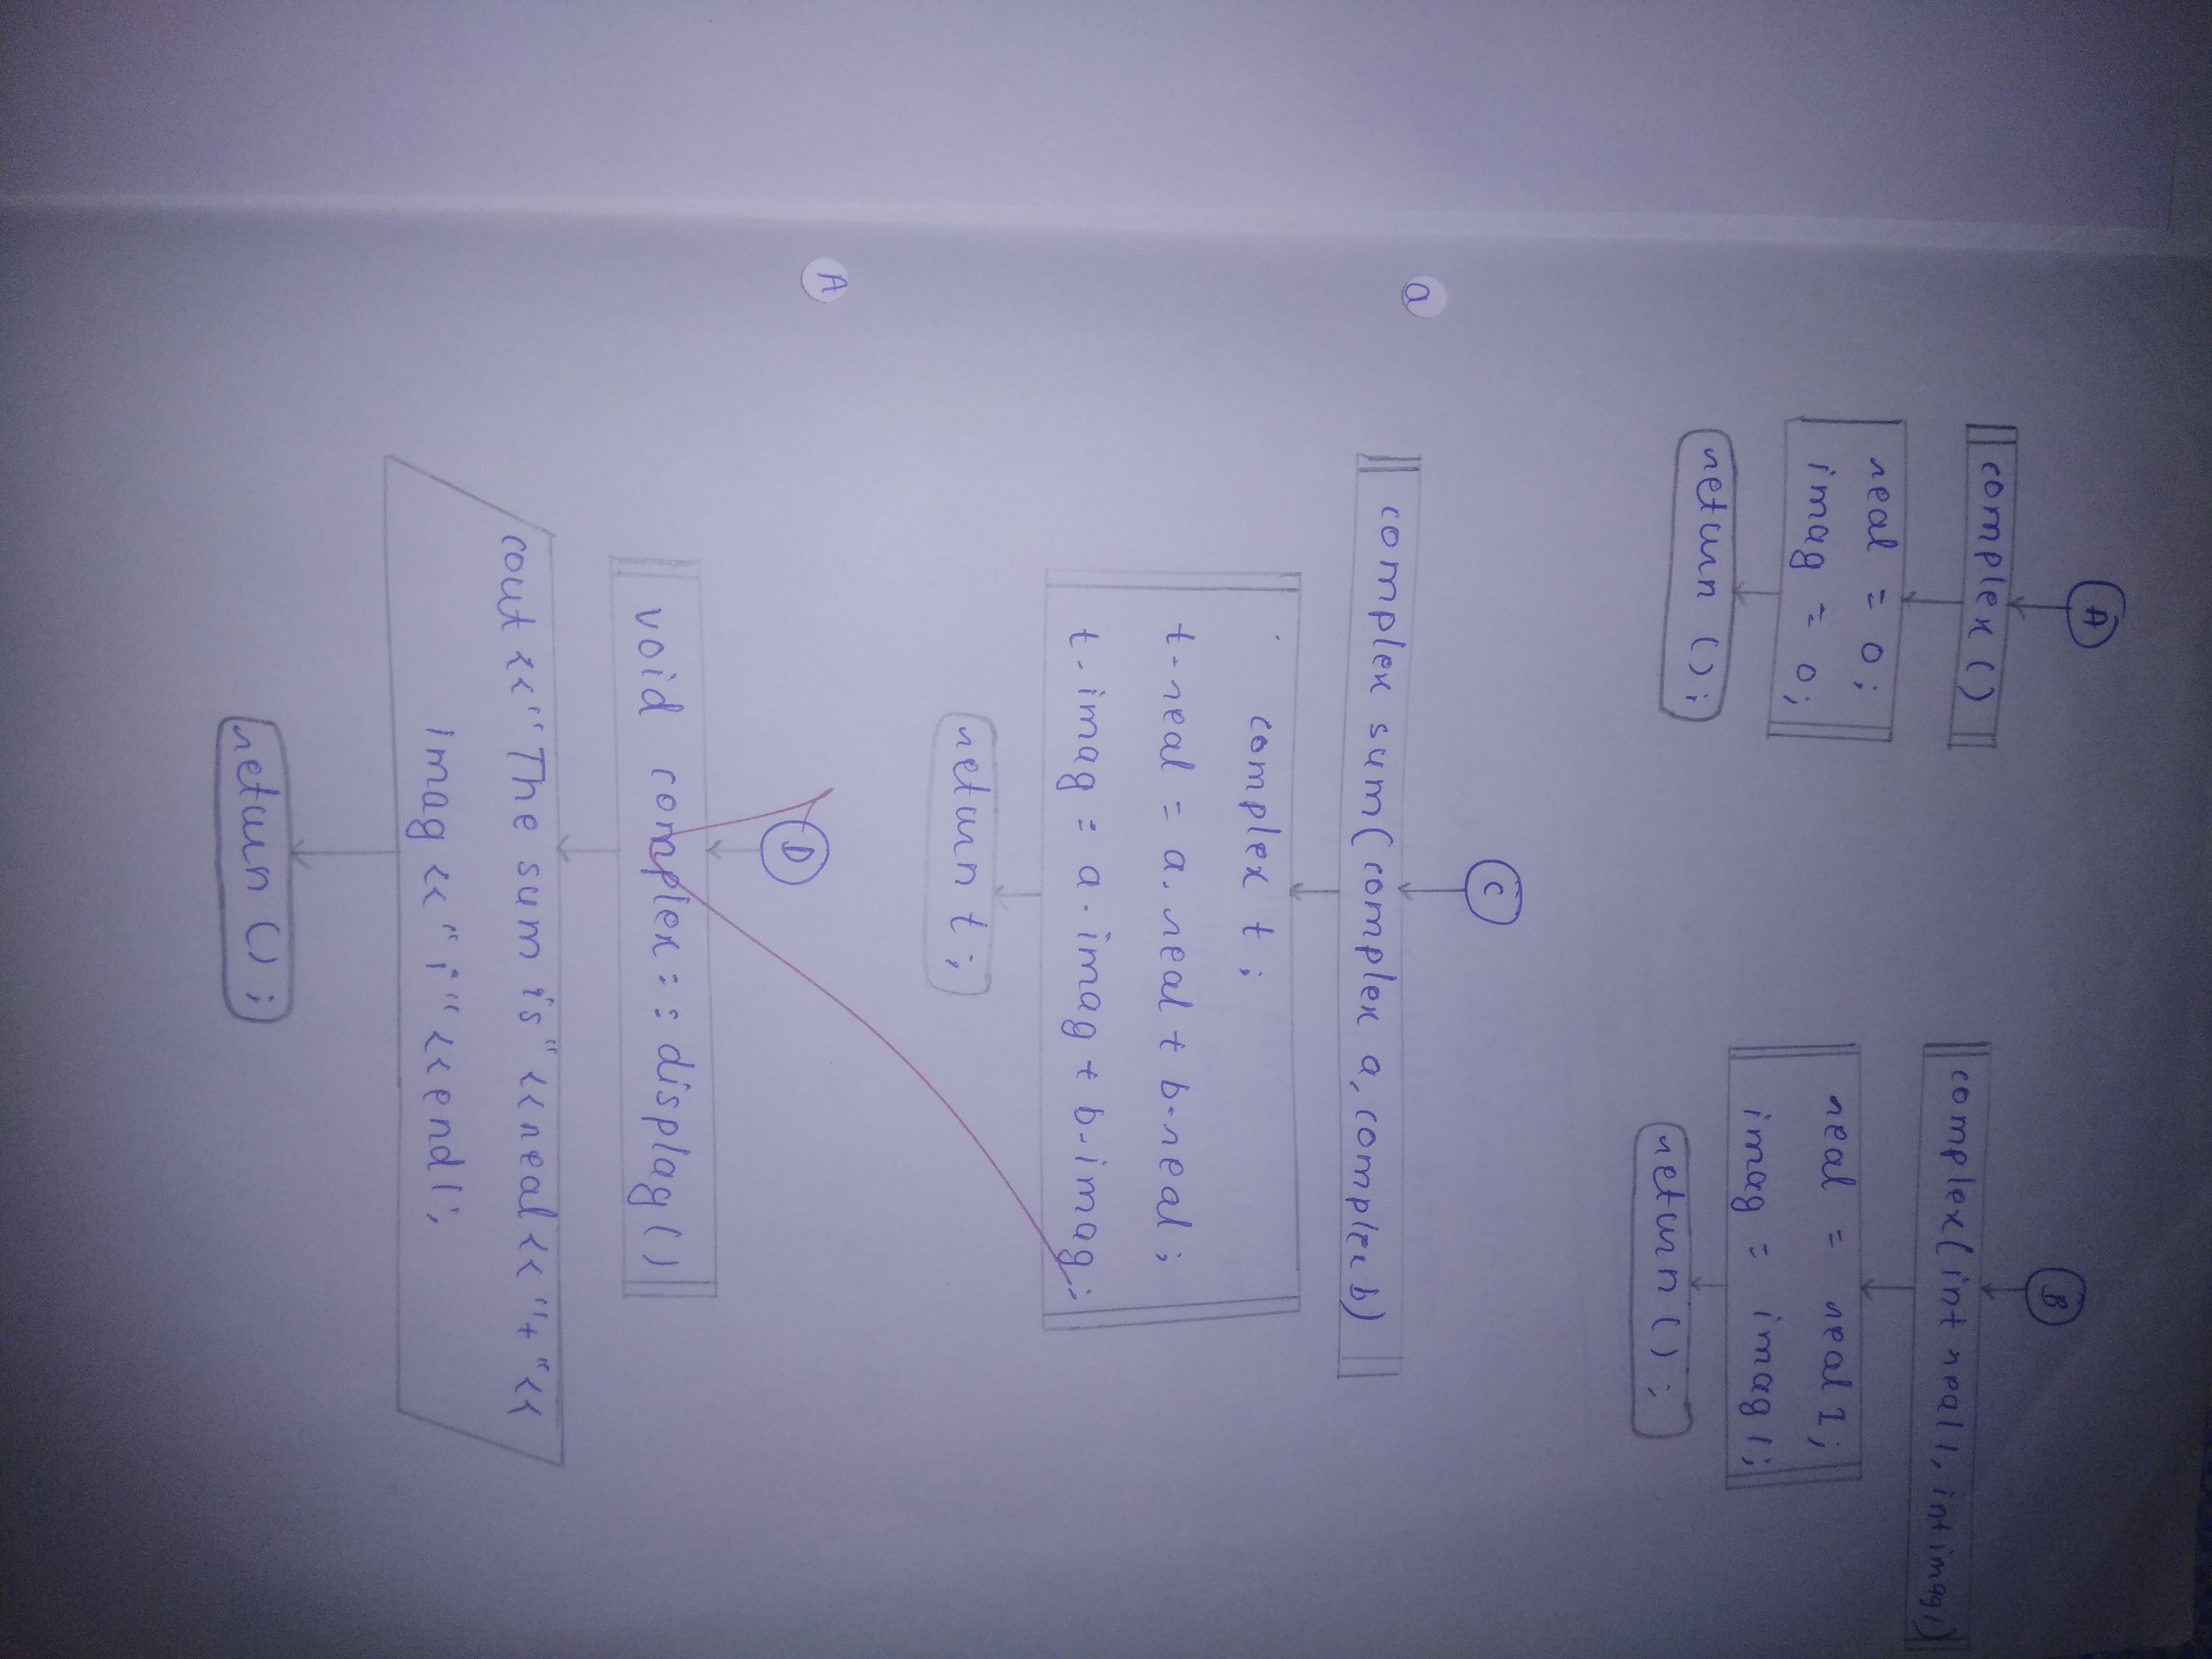 A
complex ()
real = 0;
imag = 0;
return ();
B
complex(int real1, int imag1)
real = real1;
imag = imag1;
return ();
a
C
complex sum(complex a, complex b)
complex t;
t.real = a.real + b.real;
t.imag = a.imag + b.imag;
return t;
A
D
void complex :: display()
cout <<"The sum is"<<real<<"+"<<
imag <<"i"<<endl;
return ();